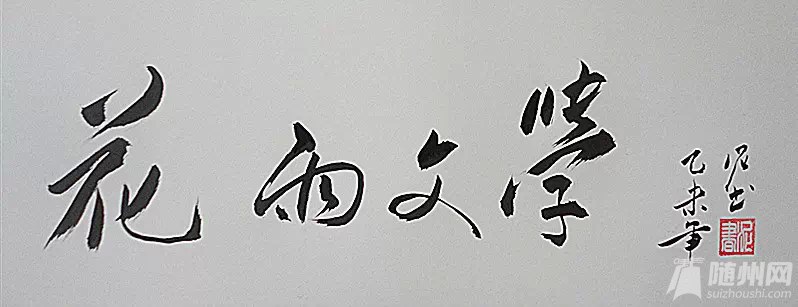 花雨文学
乙未年
泥土
泥土书
随州网
suizhoushi.com